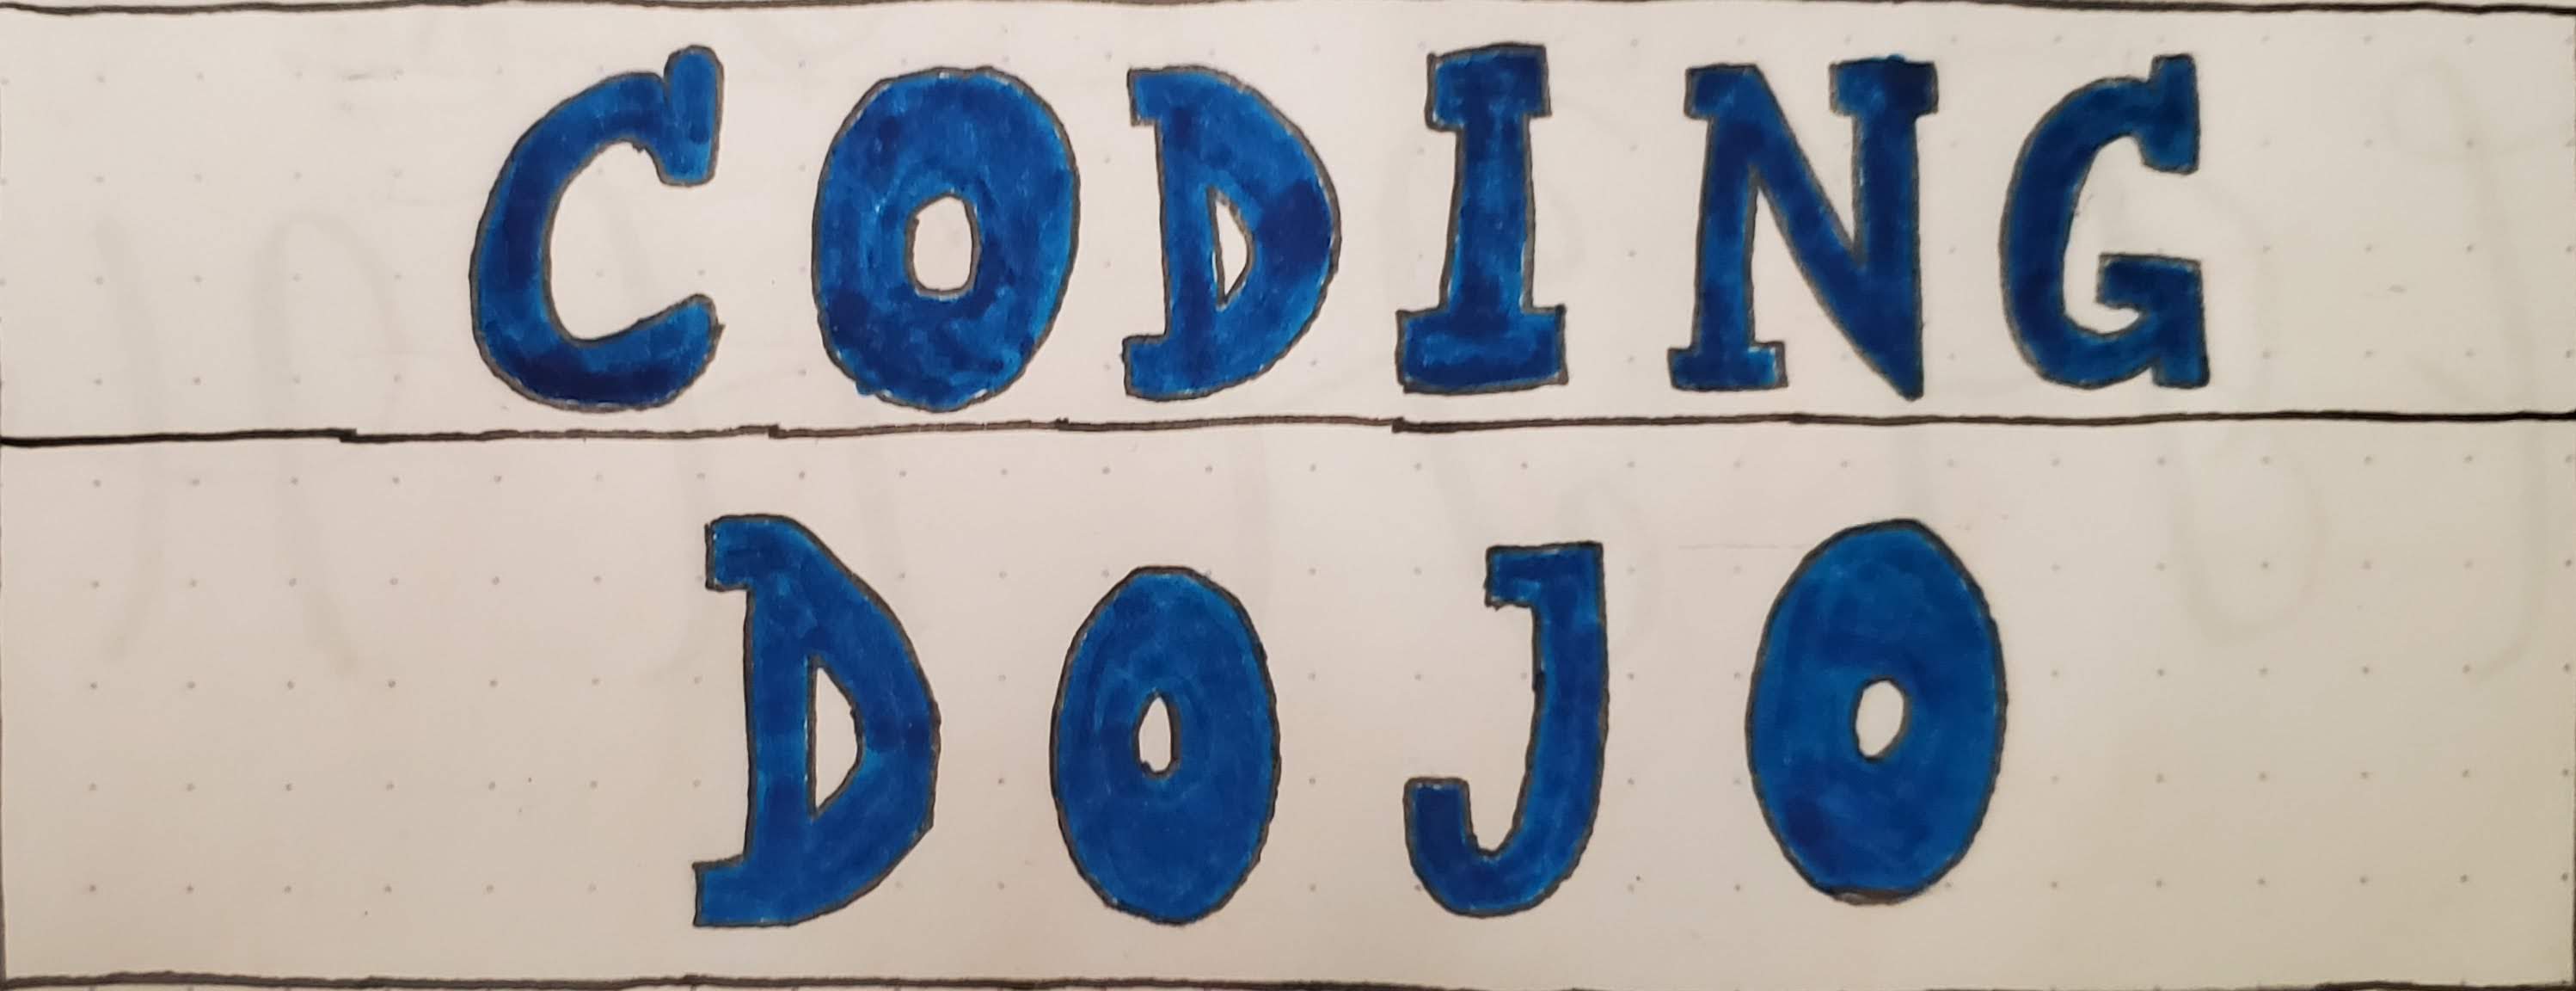 CODING
DOJO